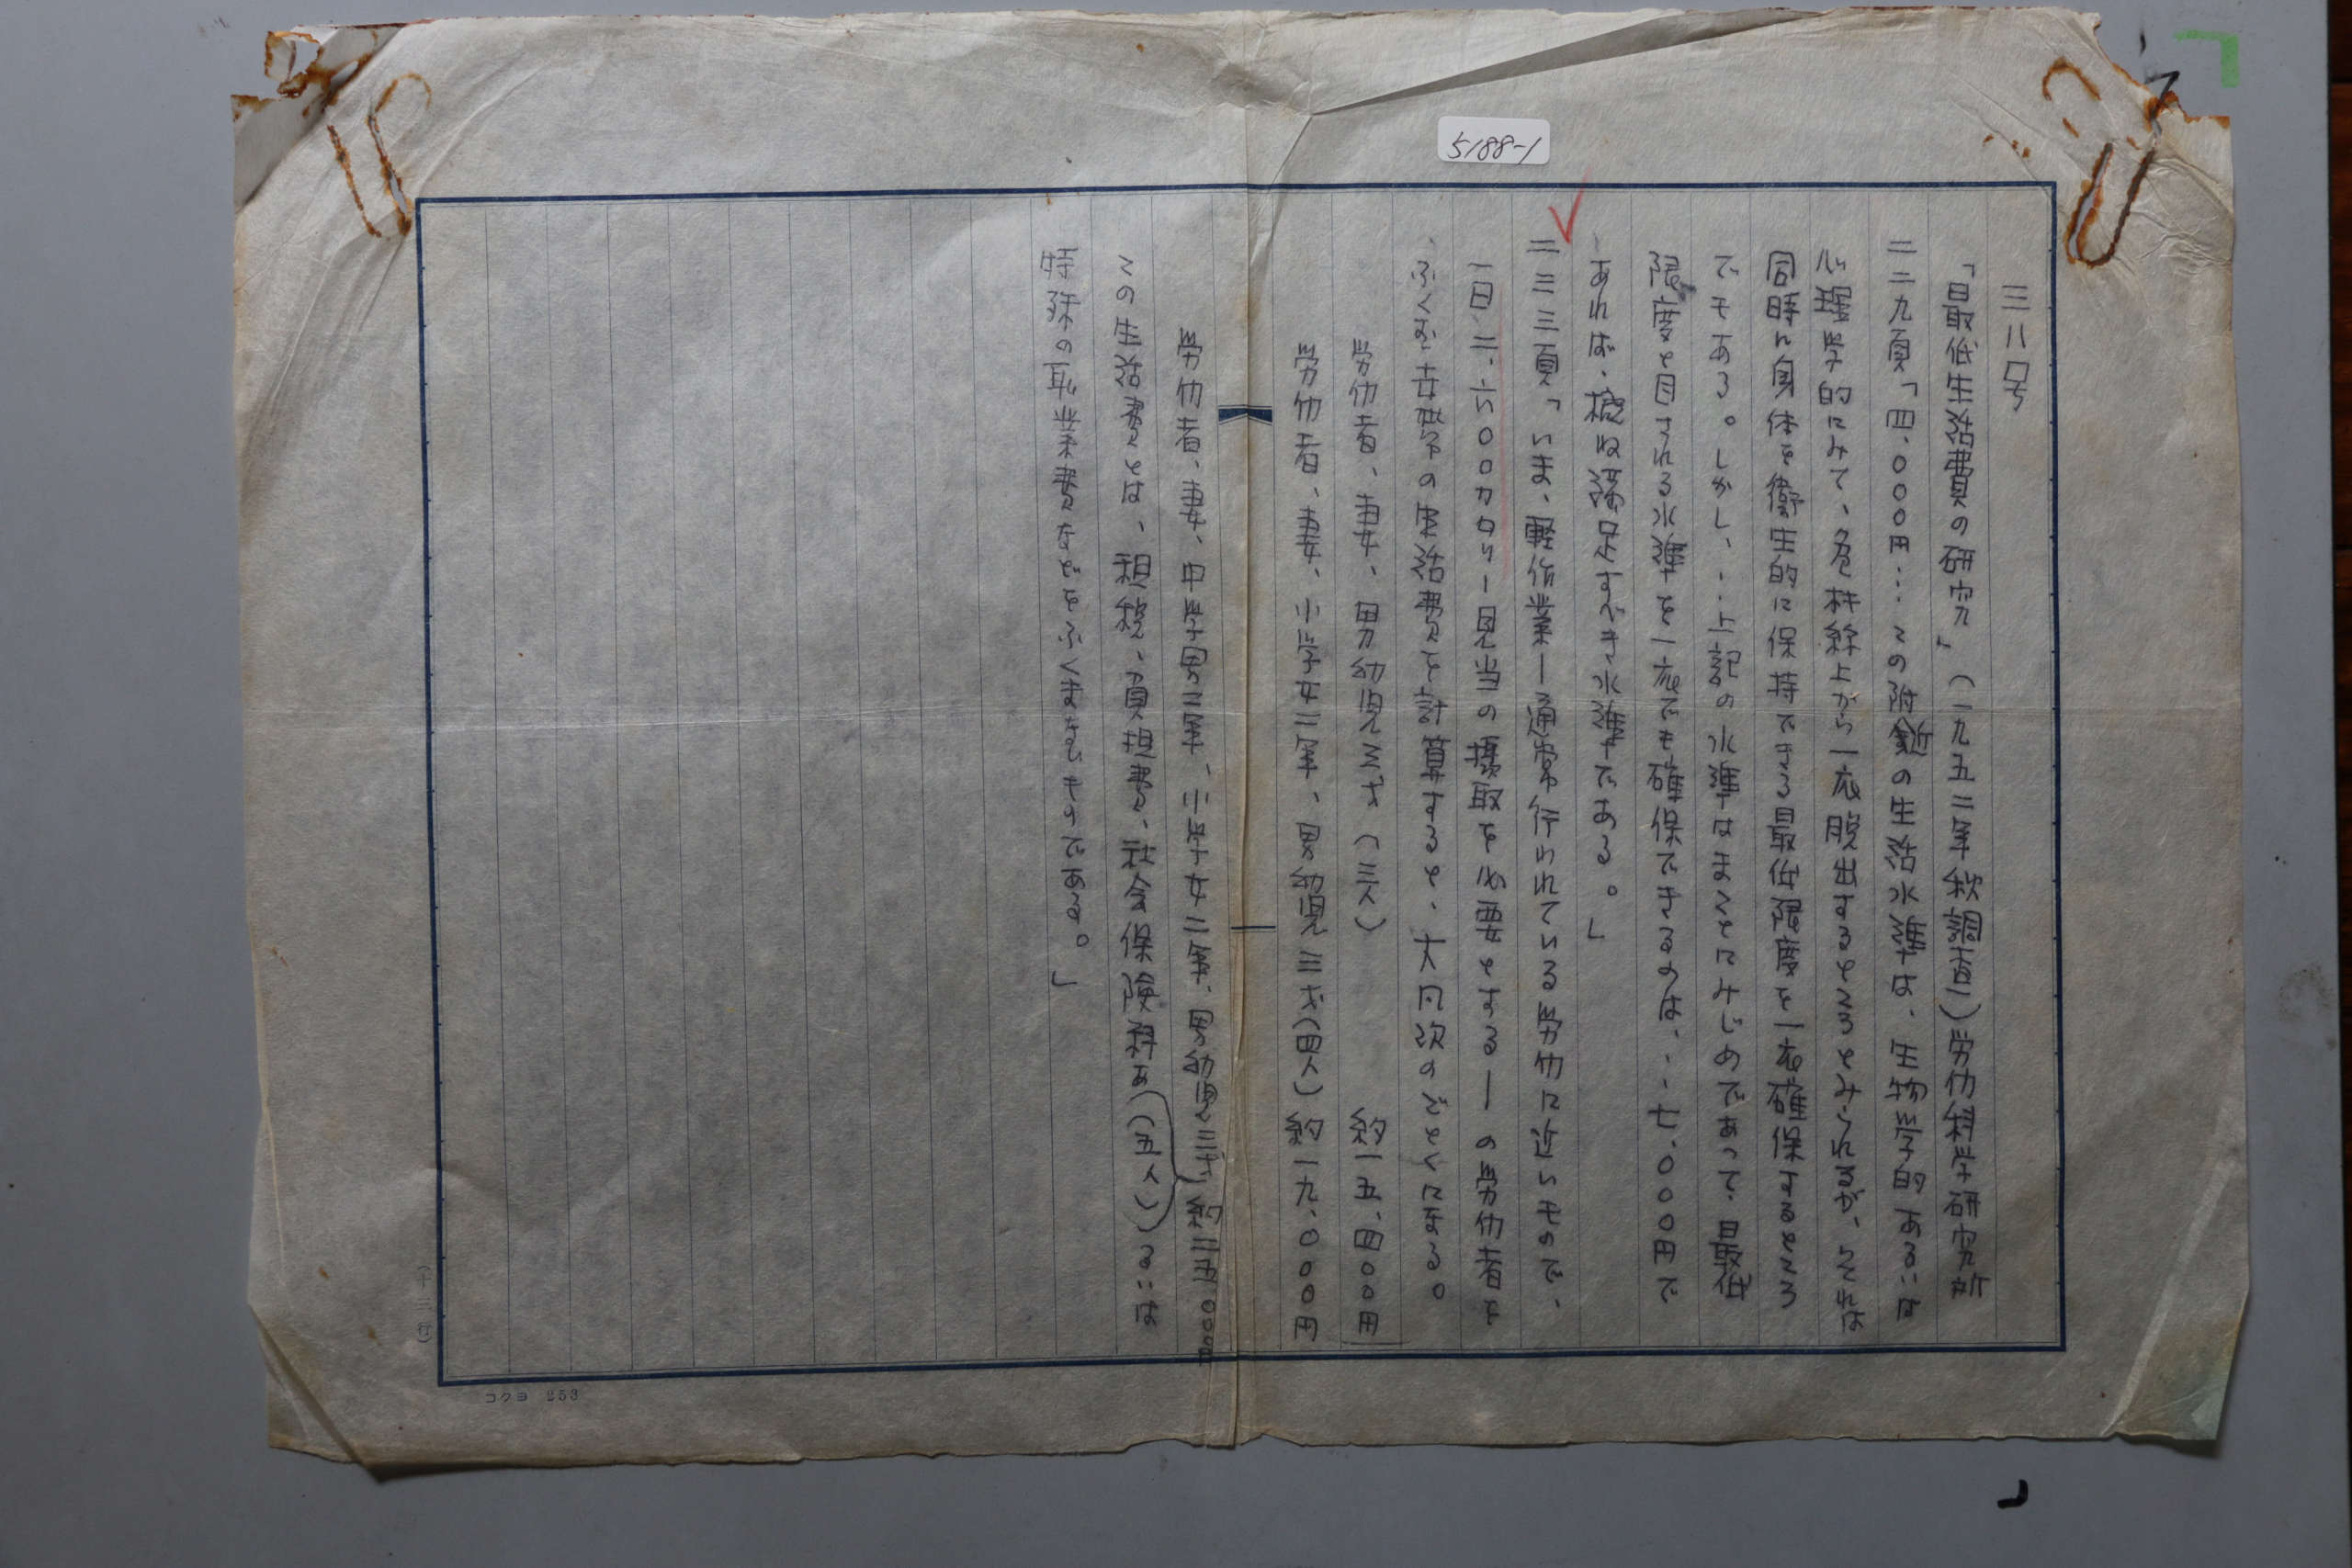 5188-1
三八号
「最低生活費の研究」（一九五二年秋調査）労仂科学研究所
二二九頁「四、〇〇〇円…この附近の生活水準は、生物学的あるいは
心理学的にみて、危機線上から一応脱出するところとみられるが、それは
同時に身体を衛生的に保持できる最低限度を一応確保するところ
でもある。しかし、‥上記の水準はまことにみじめであって、最低
限度と目される水準を一応でも確保できるのは、‥七、〇〇〇円で
あれば、概ね満足すべき水準である。」
二三三頁「いま、軽作業ー通常行われている労仂に近いもので、
一日二、六〇〇カロリー見当の摂取を必要とするーの労仂者を
ふくむ世帯の生活費を計算すると、大凡次のごとくになる。
労仂者、妻、男幼児三才（三人） 約一五、四〇〇円
労仂者、妻、小学女二年、男幼児三才（四人）約一九、〇〇〇円
労仂者、妻、中学男三年、小学女二年、男幼児三才、約二五、〇〇〇円
（五人）
この生活費とは、租税、負担費、社会保険料あるいは
特殊の職業費などをふくまないものである。」
（十三行）
コクヨ 253